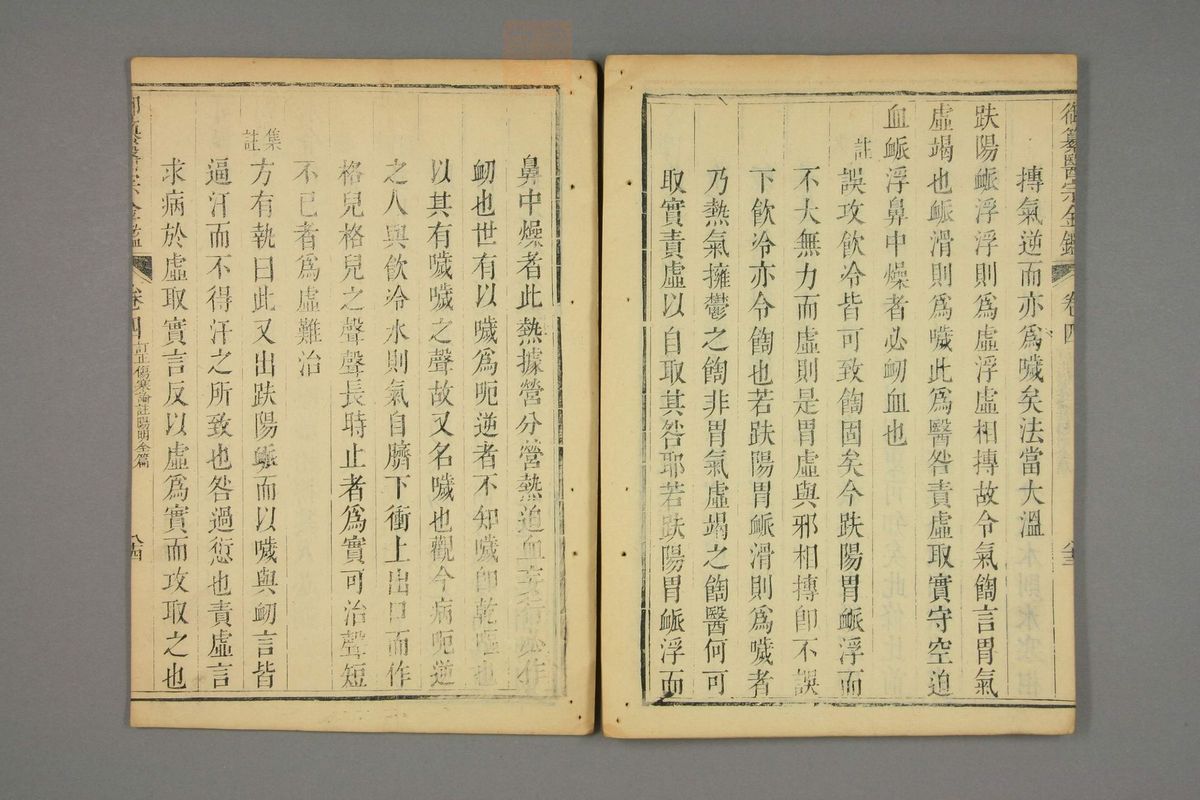 御纂醫宗金鑑 卷四 八十三
搏氣逆而亦爲噦矣法當大溫
趺陽脈浮浮則爲虛浮虛相搏故令氣䭇言胃氣
虛竭也脈滑則爲噦此爲醫咎責虛取實守空迫
血脈浮鼻中燥者必衂血也
註
誤攻飲冷皆可致䭇固矣今趺陽胃脈浮而
不大無力而虛則是胃虛與邪相搏卽不誤
下飲冷亦令䭇也若趺陽胃脈滑則爲噦者
乃熱氣擁鬱之䭇非胃氣虛竭之䭇醫何可
取實責虛以自取其咎耶若趺陽胃脈浮而
鼻中燥者此熱據營分營熱迫血妄行必作
衂也世有以噦爲呃逆者不知噦卽乾嘔也
以其有噦噦之聲故又名噦也觀今病呃逆
之人與飲冷水則氣自臍下衝上出口而作
格兒格兒之聲聲長時止者爲實可治聲短
不已者爲虛難治
集註
方有執曰此又出趺陽脈而以噦與衂言皆
逼汗而不得汗之所致也咎過愆也責虛言
求病於虛取實言反以虛爲實而攻取之也
御纂醫宗金鑑 卷四 訂正傷寒論註陽明全篇 八四